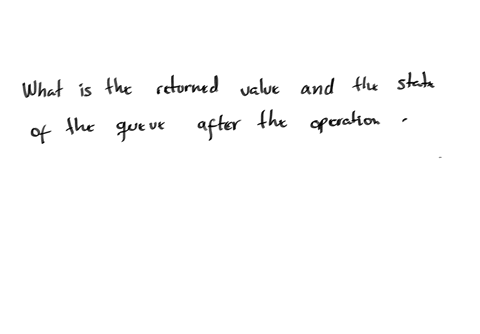 What is the returned value and the state
of the queue after the operation .